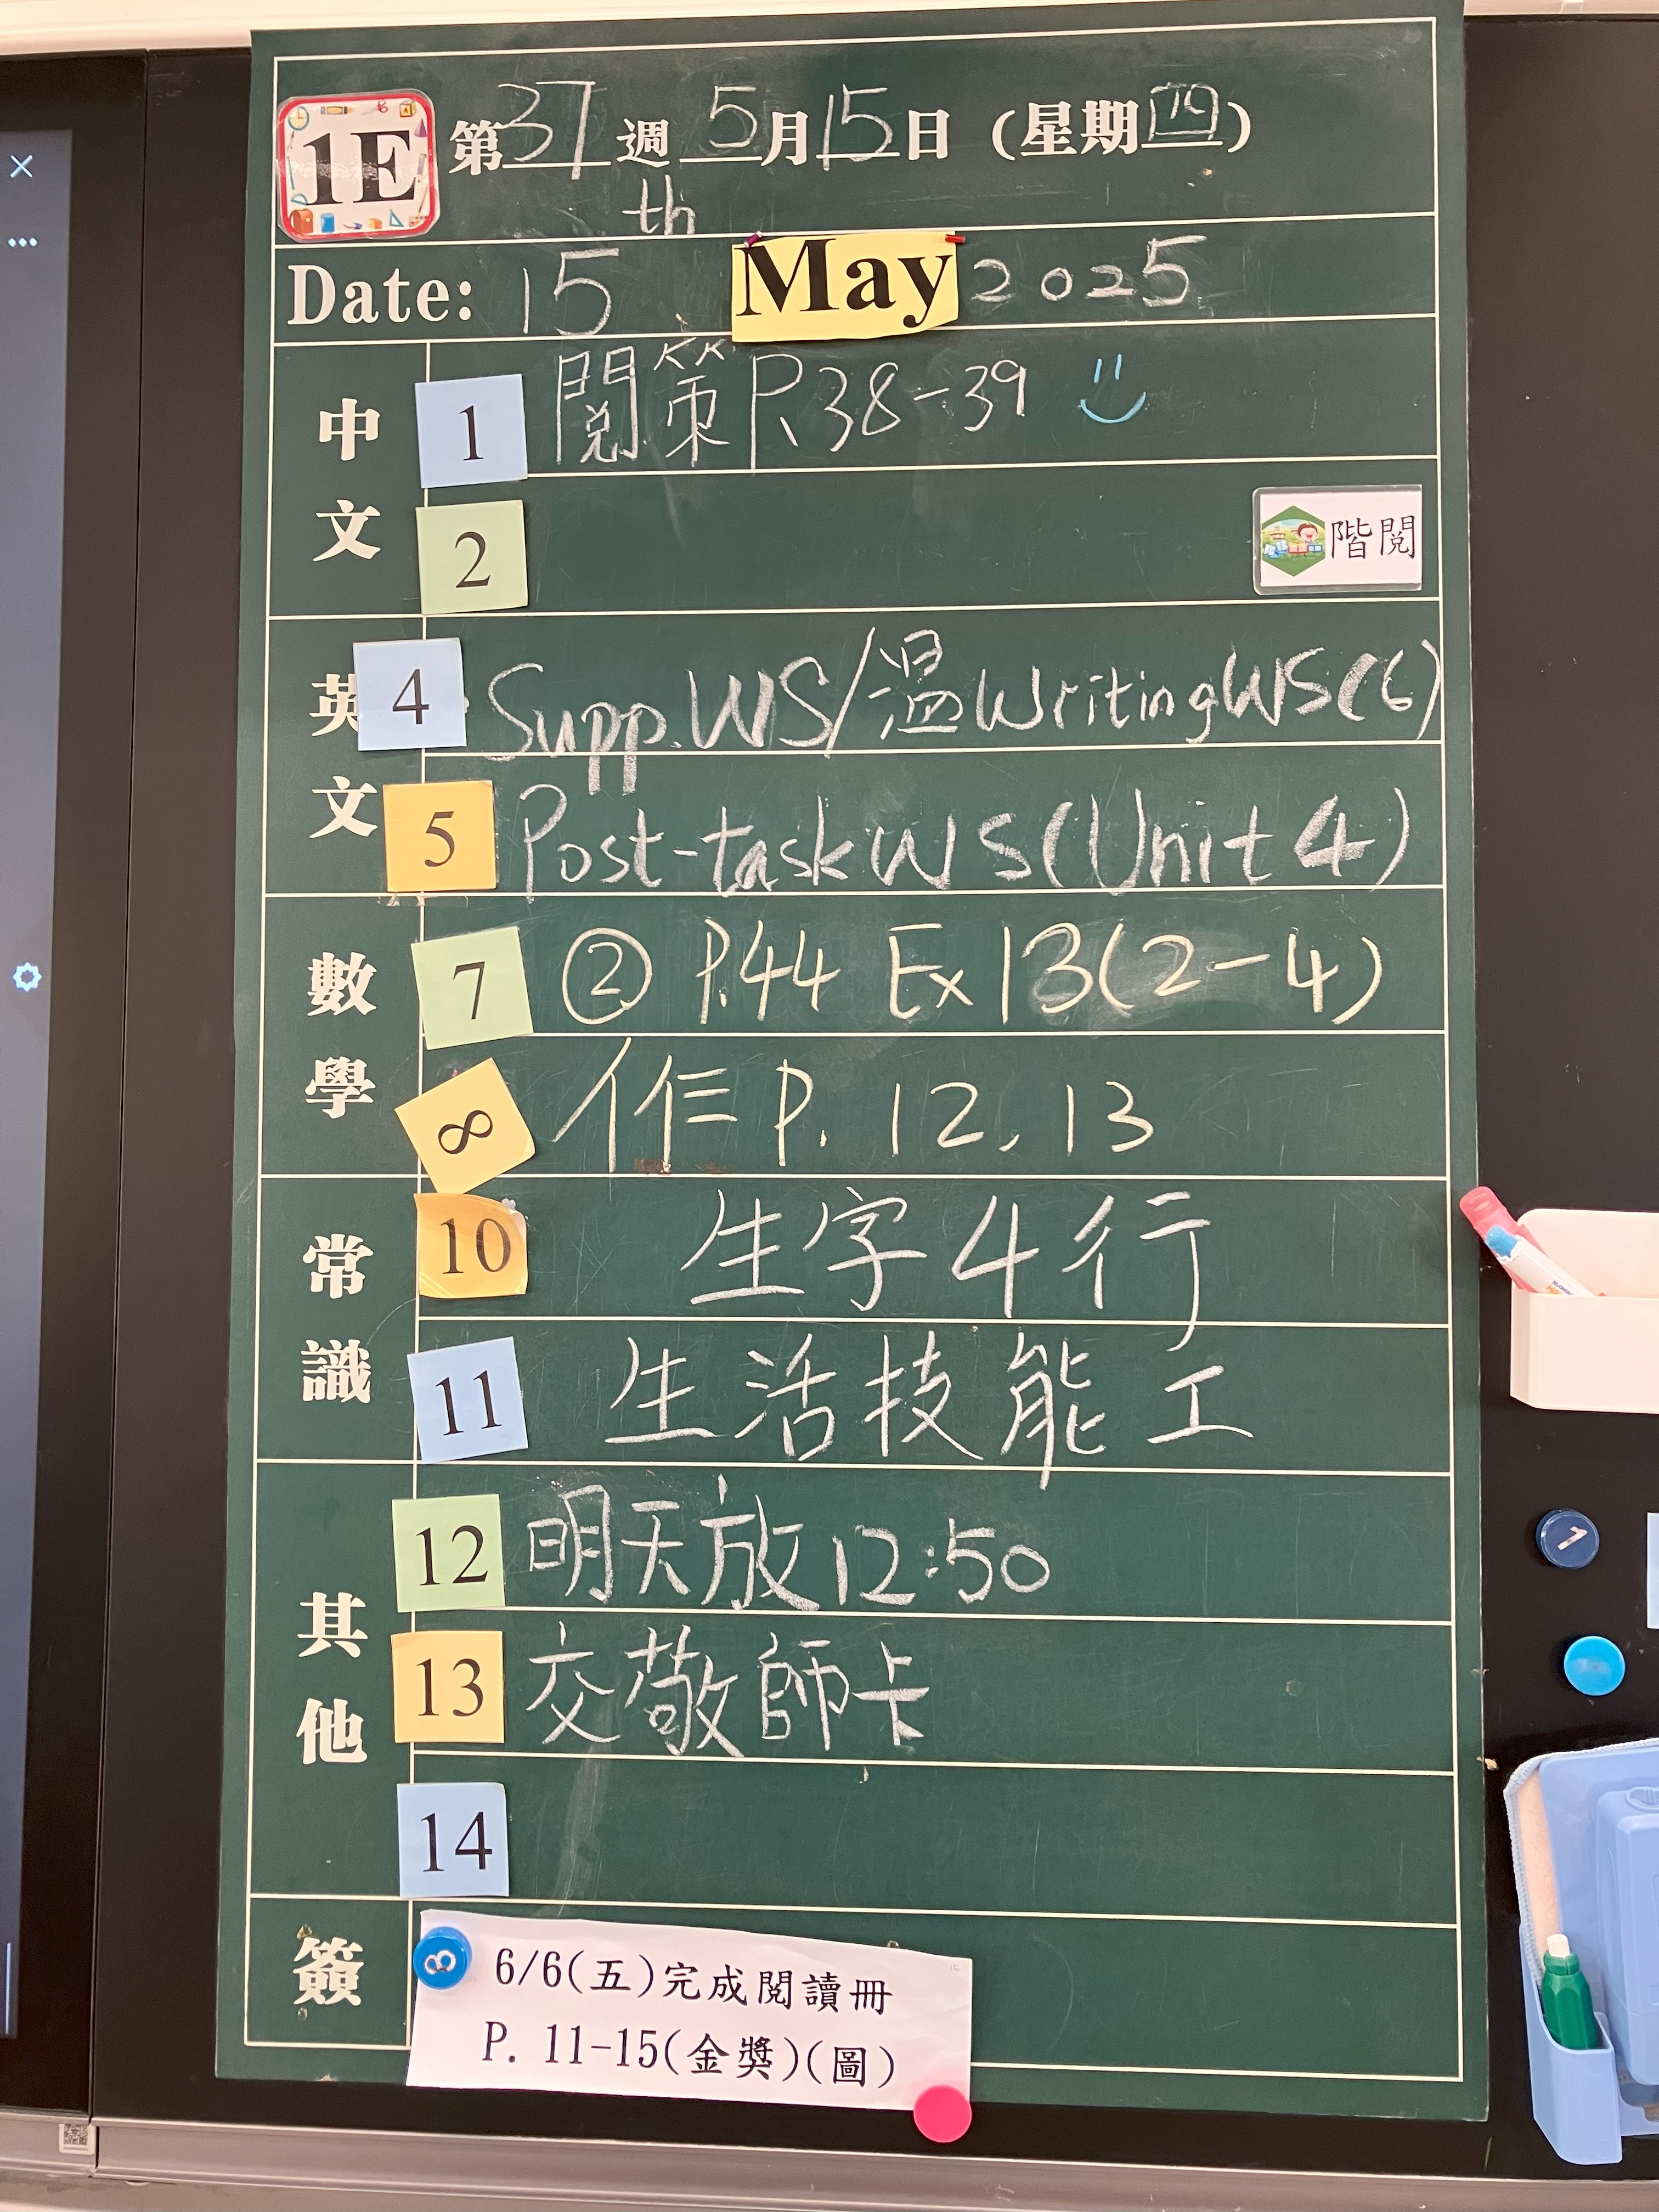 1E
第37週 5月15日 (星期四)
Date: 15th May 2025
中文
1 閱策 P.38-39
2
階閱
英文
4 Supp. WS/溫Writing WS(6)
5 Post-task WS (Unit 4)
數學
7 ② P.44 Ex 13(2-4)
8 作 P. 12, 13
常識
10 生字4行
11 生活技能工
其他
12 明天放12:50
13 交敬師卡
14
簽
8 6/6(五)完成閱讀冊
P. 11-15(金獎)(圖)
1